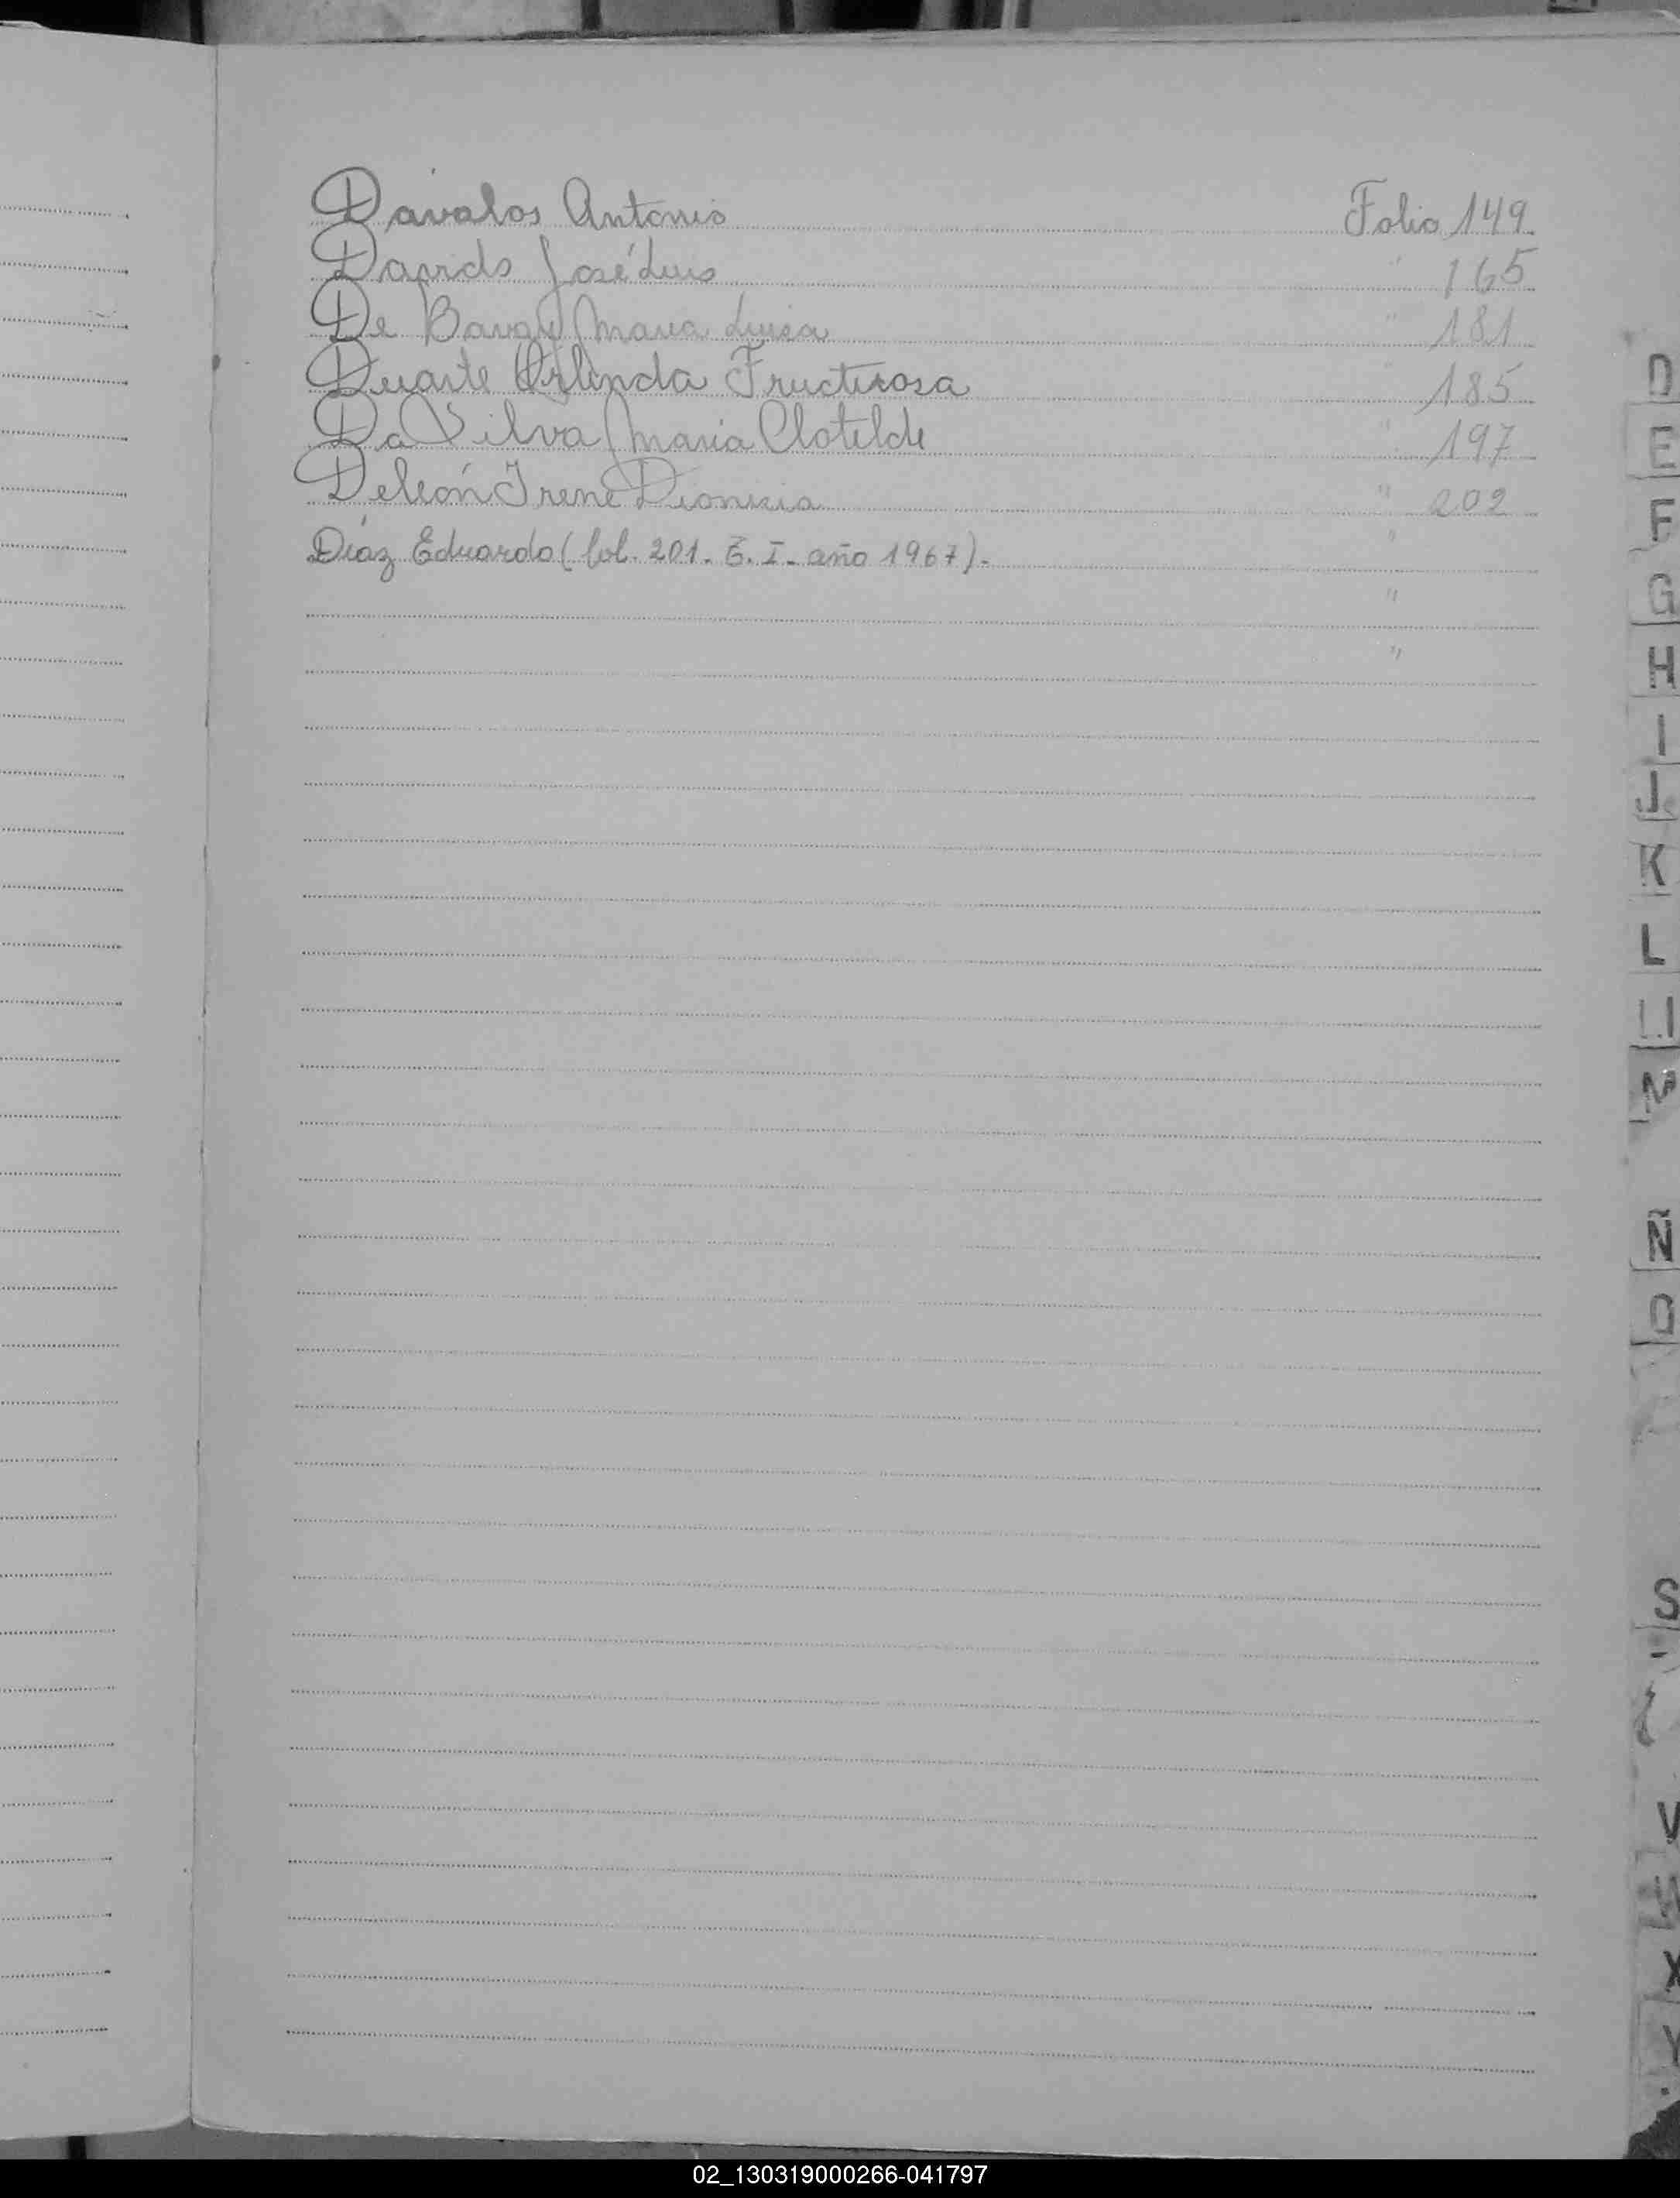 Dávalos Antonio Folio 149
José Luis " 165
De Maria Luisa " 181
Duarte Orlinda Fructuosa " 185
Da Silva Maria Clotilde " 197
Deleón Irene Dionisia " 202
Díaz Eduardo (fol. 201. E. I. año 1967). "
"
"
D
E
F
G
H
I
J
K
L
Ll
M
Ñ
O
S
V
W
X
Y
02_130319000266-041797